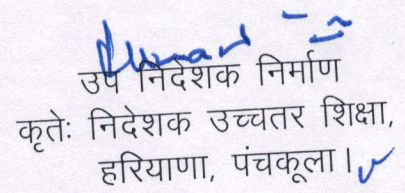 उप निदेशक निर्माण
कृतेः निदेशक उच्चतर शिक्षा,
हरियाणा, पंचकूला।